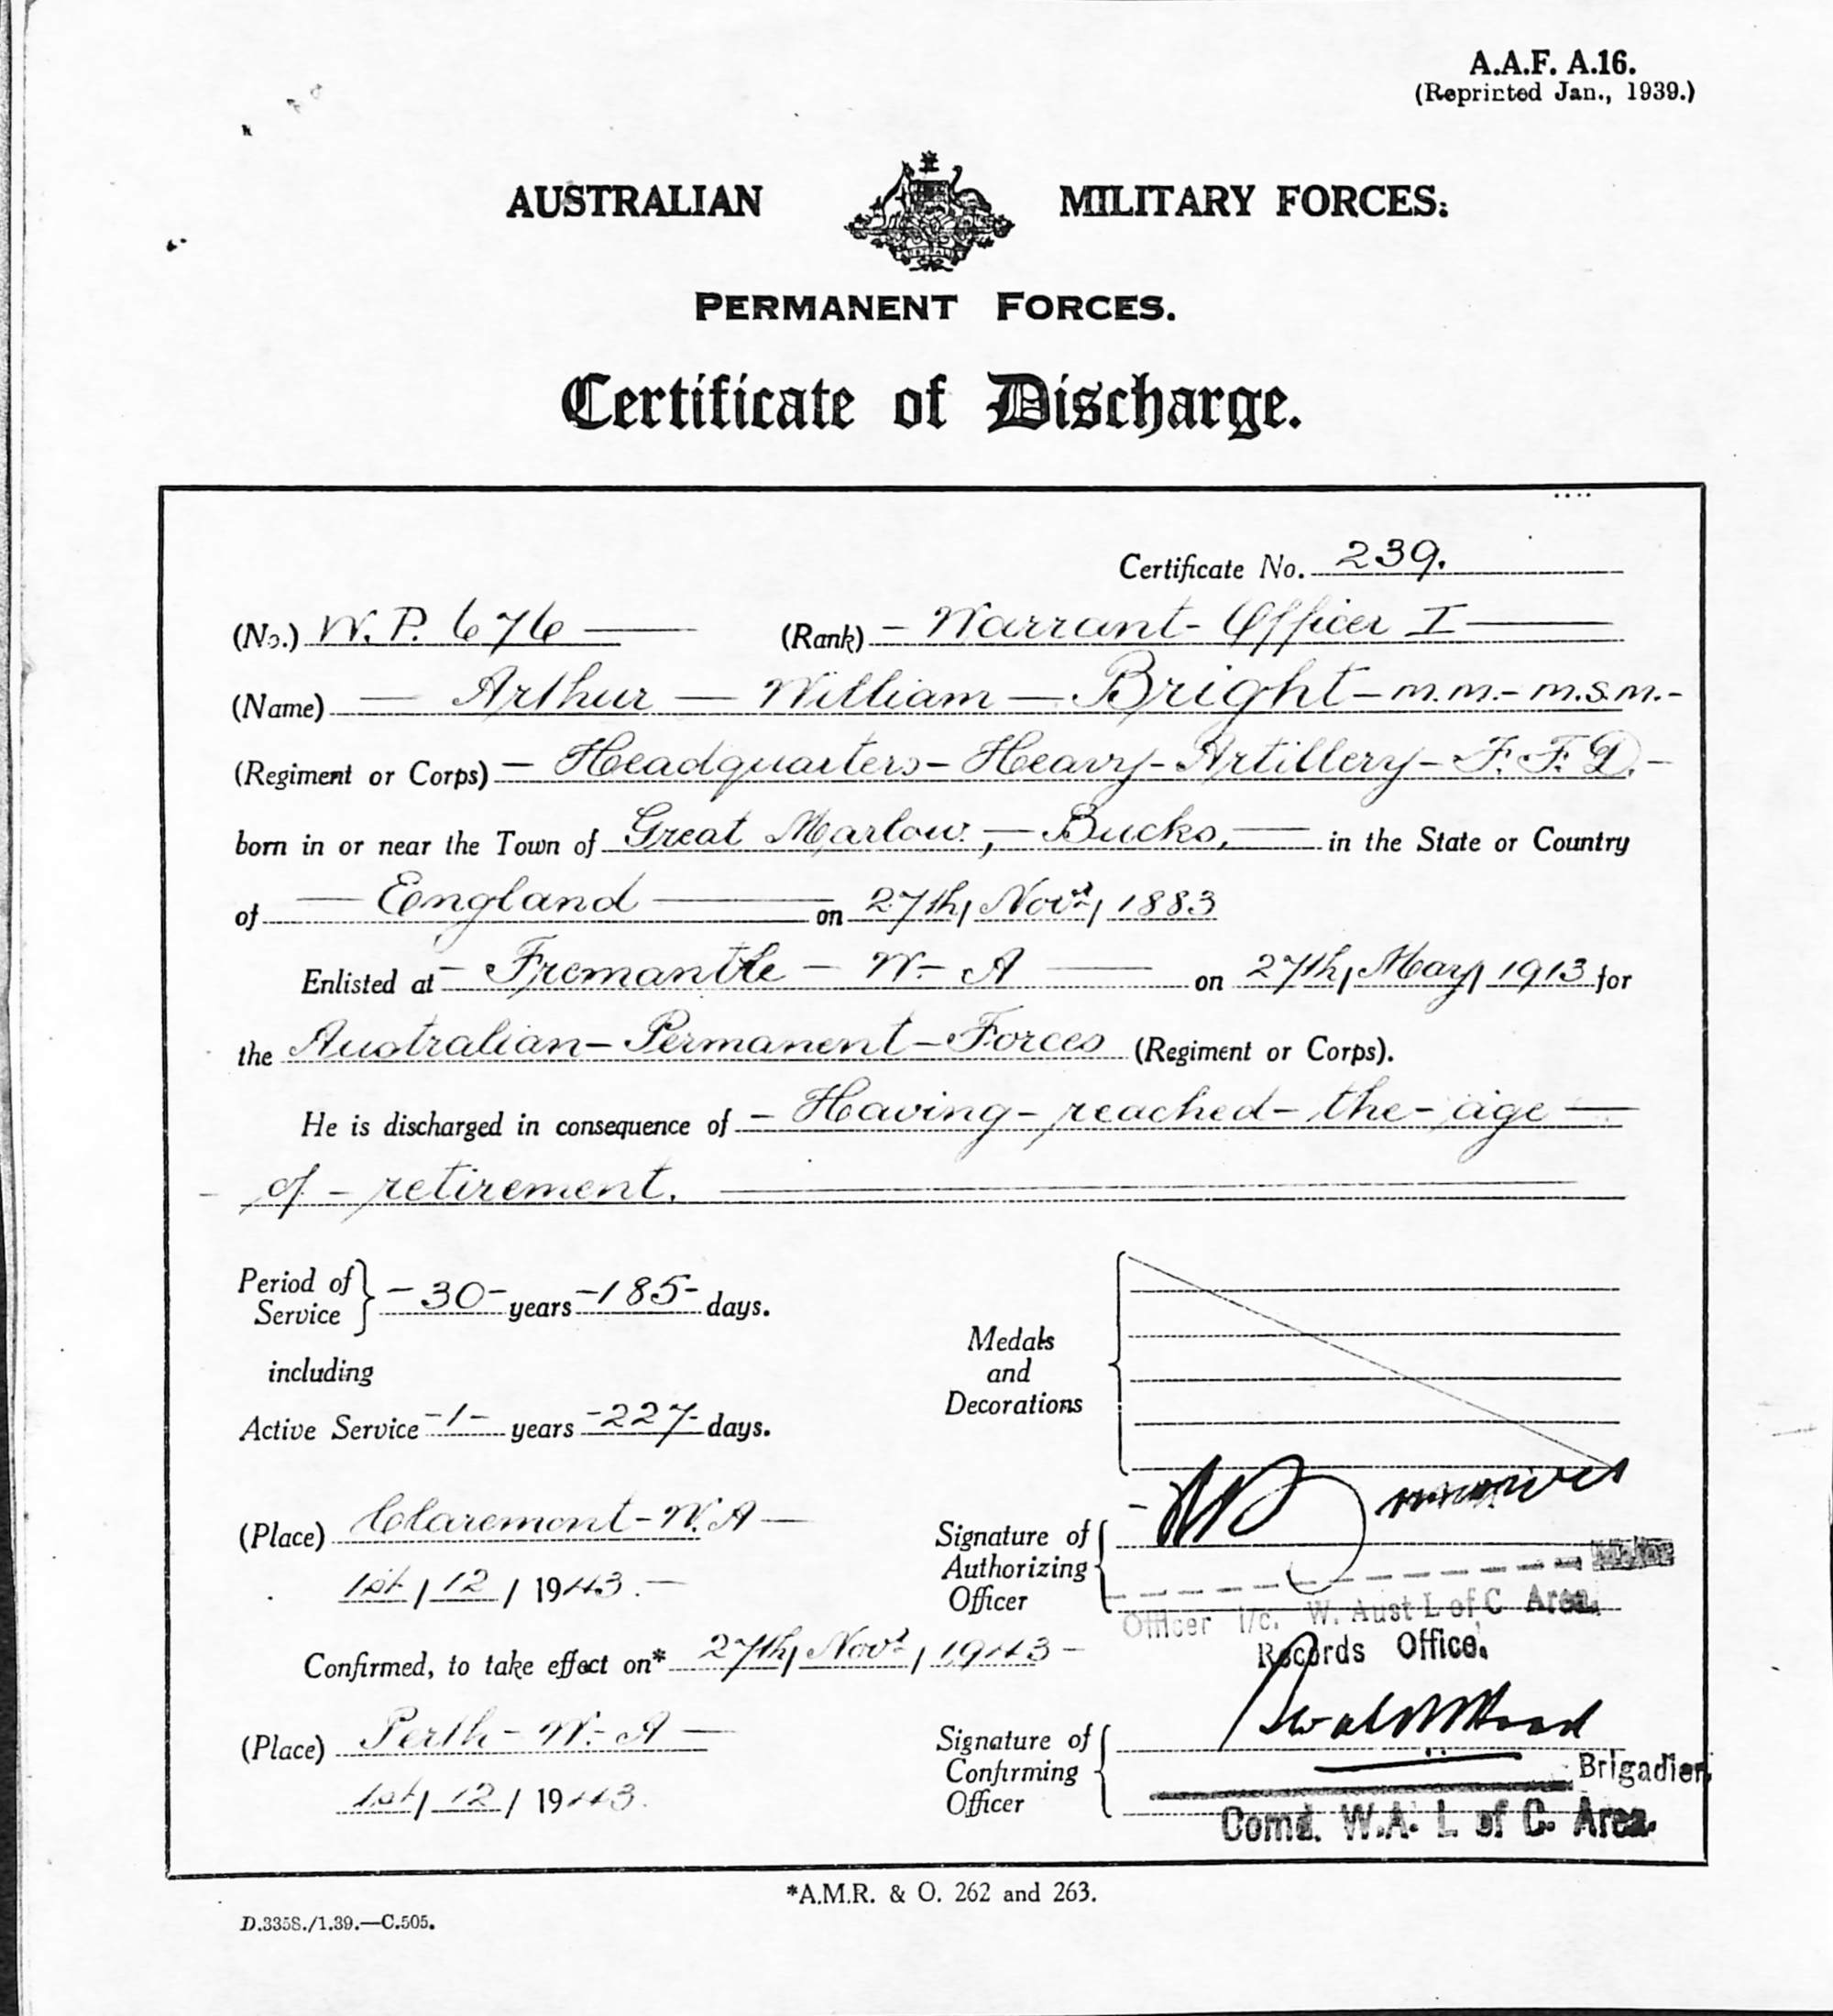 A.A.F. A.16.
(Reprinted Jan., 1939.)
AUSTRALIAN MILITARY FORCES.
PERMANENT FORCES.
Certificate of Discharge.
Certificate No. 239.
(No.) W.P. 676 — (Rank) - Warrant - Officer I —
(Name) — Arthur — William — Bright - M.M. - M.S.M. -
(Regiment or Corps) - Headquarters - Heavy - Artillery - F.F.D. -
born in or near the Town of Great Marlow, — Bucks, — in the State or Country
of — England — on 27th, Novr, 1883
Enlisted at - Fremantle - W. - A — on 27th, May, 1913 for
the Australian - Permanent - Forces (Regiment or Corps).
He is discharged in consequence of - Having - reached - the - age —
- of - retirement. —
Period of Service } - 30 - years - 185 - days.
including
Active Service - 1 - years - 227 - days.
Medals and Decorations
(Place) Claremont - W.A —
1st / 12 / 1943. —
Signature of Authorizing Officer
Officer i/c. W. Aust L of C Area.
Records Office.
Confirmed, to take effect on* 27th, Novr, 1943 -
(Place) Perth - W. - A —
1st / 12 / 1943.
Signature of Confirming Officer
Brigadier,
Comd. W.A. L of C. Area.
*A.M.R. & O. 262 and 263.
D.3358./1.39.—C.505.